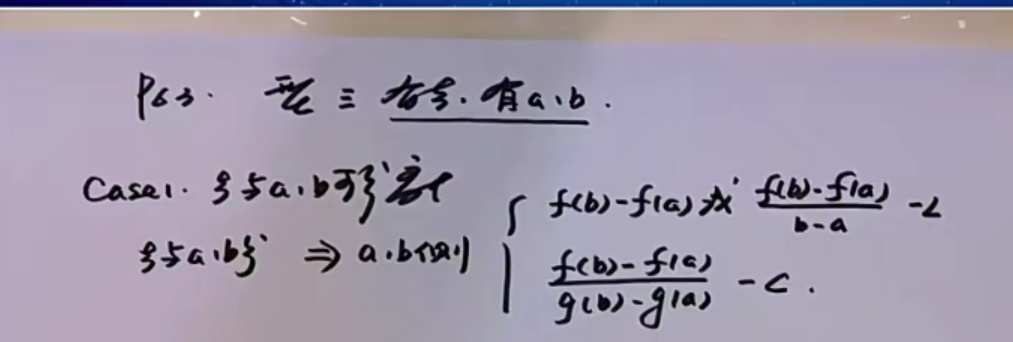 P63. 型三 有ξ.有a.b.
Case1. ξ与a.b可分离
ξ与a.b分 ⇒ a.b侧
f(b)-f(a)或 \frac{f(b)-f(a)}{b-a} -L
\frac{f(b)-f(a)}{g(b)-g(a)} -C.